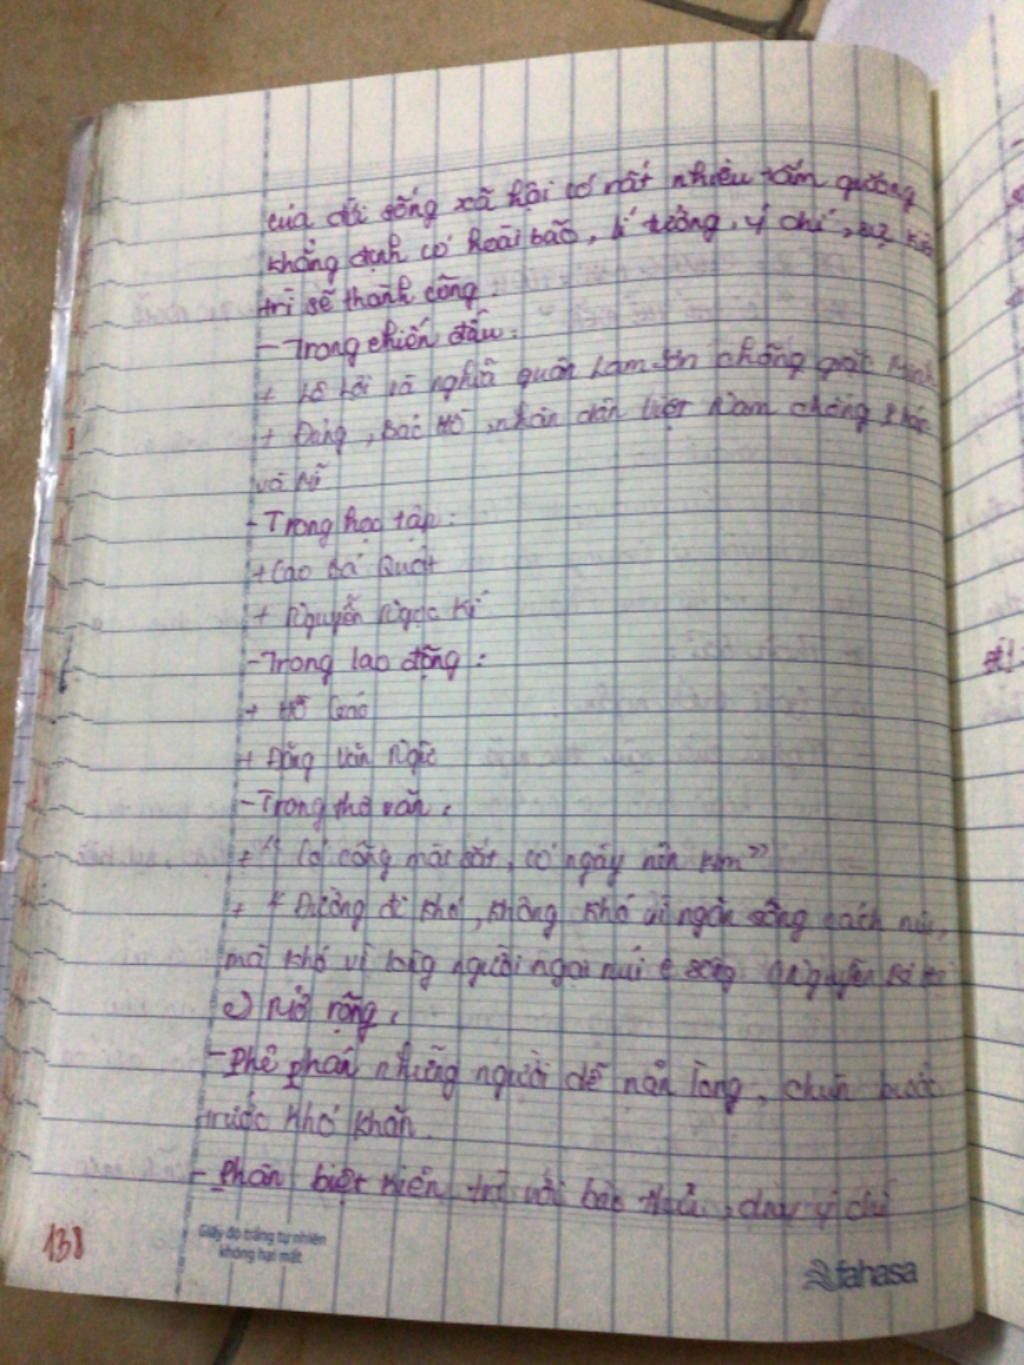 của đời sống xã hội có rất nhiều tấm gương
khẳng định có hoài bão, lí tưởng, ý chí, sự kiên
trì sẽ thành công.
- Trong chiến đấu:
+ Lê Lợi và nghĩa quân Lam Sơn chống giặc Minh
+ Đảng, Bác Hồ, nhân dân Việt Nam chống Pháp
và Mĩ
- Trong học tập:
+ Cao Bá Quát
+ Nguyễn Ngọc Kí
- Trong lao động:
+ Hồ Giáo
+ Đặng Văn Ngữ
- Trong thơ văn:
+ "Có công mài sắt, có ngày nên kim"
+ "Đường đi khó, không khó vì ngăn sông cách núi,
mà khó vì lòng người ngại núi e sông Nguyễn Bá
c) Mở rộng:
- Phê phán những người dễ nản lòng, chùn bước
trước khó khăn.
- Phân biệt kiên trì với bảo thủ, duy ý chí
138
Giấy độ trắng tự nhiên
không hại mắt
fahasa